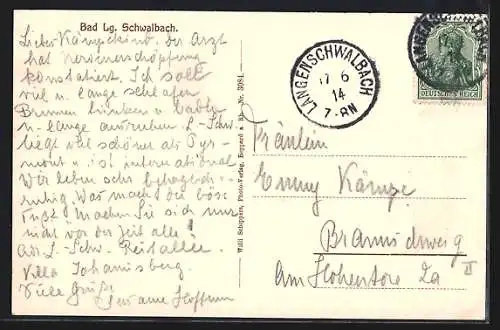 Bad Lg. Schwalbach.
Lieber Kämpekind, der Arzt
hat Nervenerschöpfung
konstatiert. Ich soll
viel u. lange schlafen
Brunnen trinken u. baden
u. lange ausruhen. L-Schw.
liegt viel schöner als Pyr-
mont u. ist international
Wir leben sehr behaglich
ruhig. Was macht der böse
Fuß? Machen Sie sich nur
nicht vor der Zeit alle!
Adr. L-Schw. Reitallee.
Villa Johannisberg.
Viele Grüße
Hoffmann
Willi Schoppers, Photo-Verlag, Boppard a. Rh. Nr. 3084.
LANGENSCHWALBACH
17 6
14
7-8N
DEUTSCHES REICH
Fräulein
Emmy Kämpe
Braunschweig
Am Hohentore 2a II